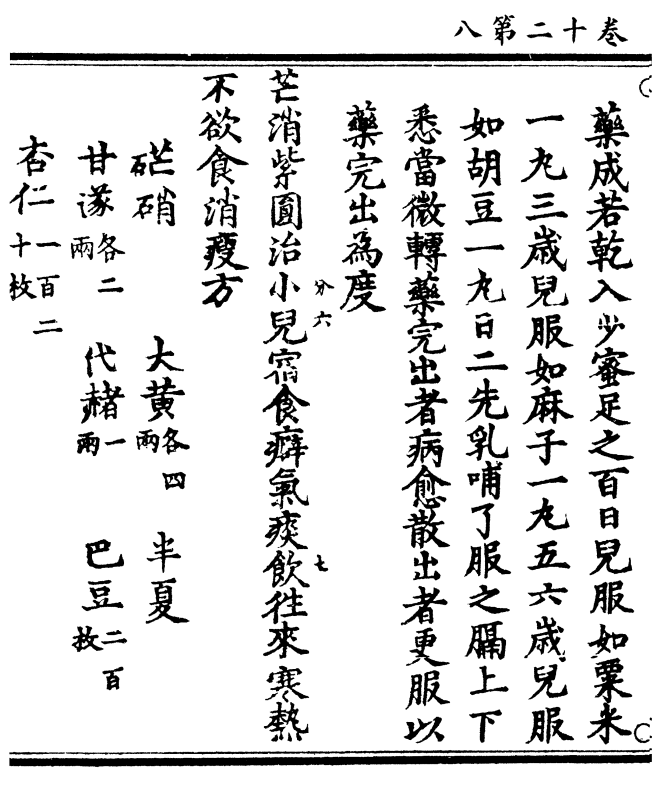 卷十二第八
藥成若乾入少蜜足之百日兒服如粟米
一丸三歳兒服如麻子一丸五六歳兒服
如胡豆一丸日二先乳哺了服之膈上下
悉當微轉藥完出者病愈散出者更服以
藥完出為度
芒消紫圓治小兒宿食癖氣痰飲往來寒熱
分六
七
不欲食消瘦方
芒硝 大黄各四兩 半夏
甘遂各二兩 代赭一兩 巴豆二百枚
杏仁一百二十枚